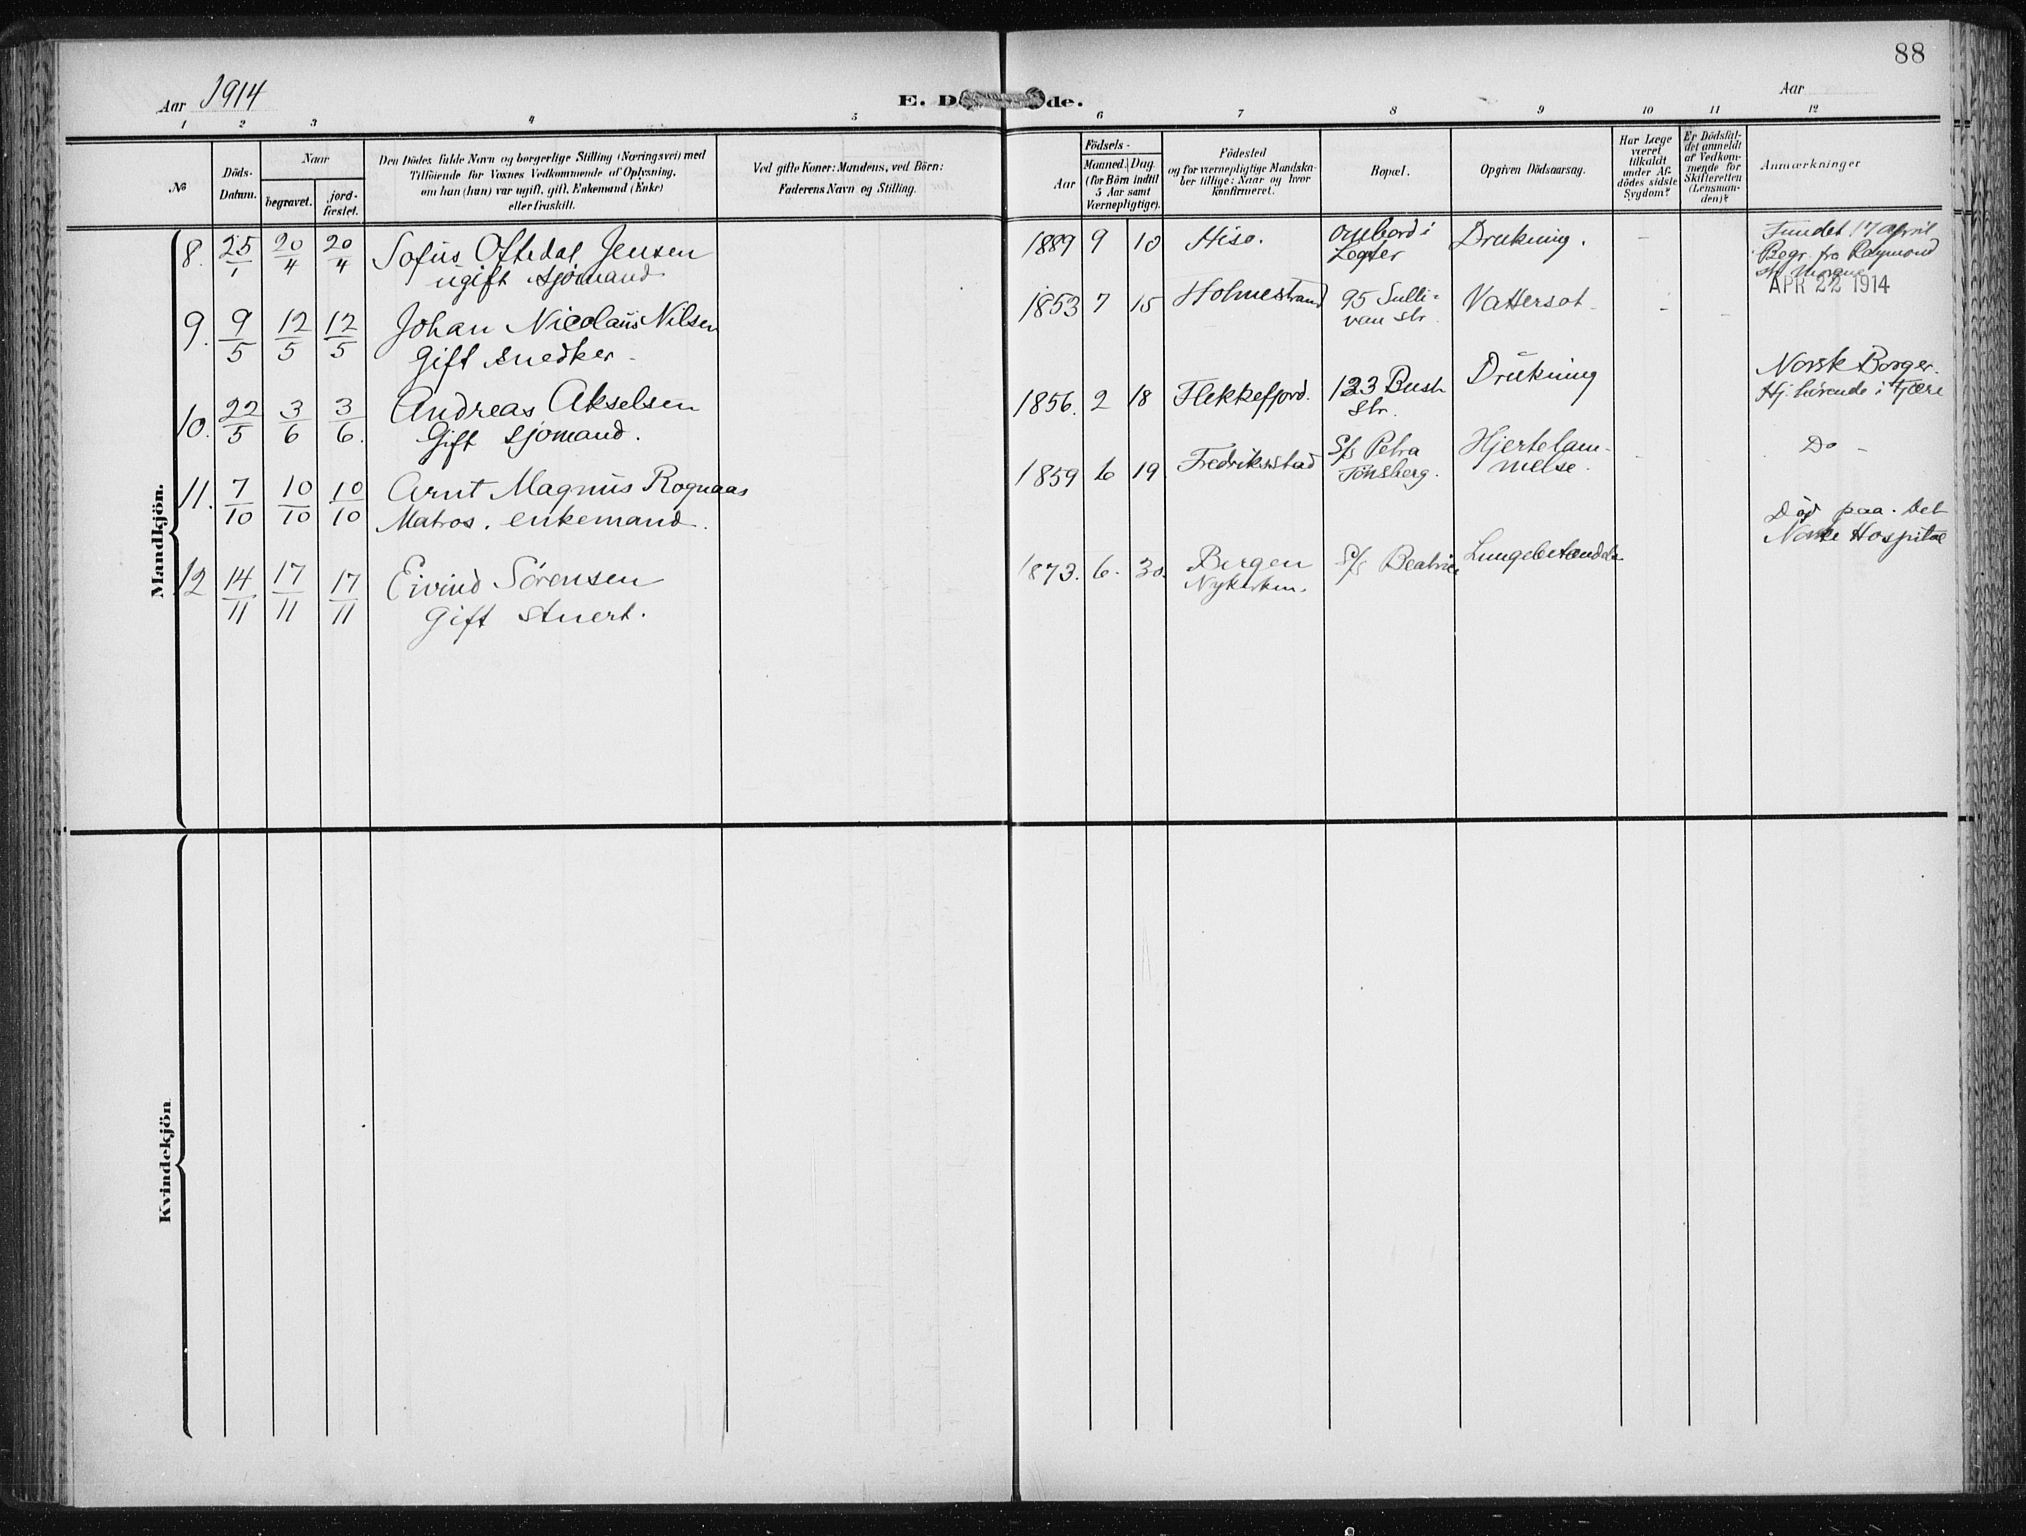 88
Aar 1914
E. D de.
Aar
1 2 3 4 5 6 7 8 9 10 11 12
No
Döds-
Datum.
Naar
begravet.
jord-
fæstet.
Den Dödes fulde Navn og borgerlige Stilling (Næringsvei) med
Tilföiende for Voxnes Vedkommende af Oplysning,
om han (hun) var ugift, gift, Enkemand (Enke)
eller fraskilt.
Ved gifte Koner: Mandens, ved Börn:
Faderens Navn og Stilling.
Födsels-
Aar
Maaned. Dag.
(for Börn indtil
5 Aar samt
Værnepligtige).
Födested
og for værnepligtige Mandska-
ber tillige: Naar og hvor
Konfirmeret.
Bopæl.
Opgiven Dödsaarsag.
Har Læge
været
tilkaldt
under Af-
dödes sidste
Sygdom?
Er Dödsfal-
det anmeldt
af Vedkom-
mende for
Skifteretten
(Lensman-
den)?
Anmærkninger
Mandkjön.
8. 25/1 20/4 20/4 Sofus Oftedal Jensen
ugift sjömand
1889 9 10 Hisö. ombord i
Drukning. -
Fundet 17 april
Begr. fra Raymond
str Morgue
APR 22 1914
9. 9/5 12/5 12/5 Johan Nicolaus Nilsen
Gift snedker -
1853 7 15 Holmestrand 95 Sulli-
van Str. Vattersot - - -
10. 22/5 3/6 3/6. Andreas Akselsen
Gift sjömand.
1856. 2 18 Flekkefjord. 123 Bush
Str. Drukning
Norsk Borger.
Hj. hörende i Fjære
11. 7/10 10/10 10/10 Arnt Magnus Rognaas
Matros. enkemand.
1859 6 19. Fredriksstad S/s Petra
Tönsberg. Hjertelam-
melse. -
Do -
12 14/11 17/11 17/11 Eivind Sörensen
Gift stuert.
1873. 6. 30. Bergen
Nykirken. S/s Beatrice
Död paa. Det
Norske Hospital
Kvindekjön